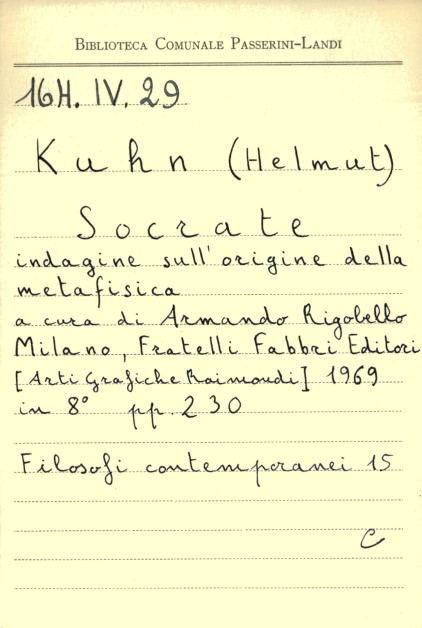 Biblioteca Comunale Passerini-Landi
16H. IV. 29
Kuhn (Helmut)
Socrate
indagine sull'origine della
metafisica
a cura di Armando Rigobello
Milano, Fratelli Fabbri Editori
[Arti Grafiche Raimondi] 1969
in 8° pp. 230
Filosofi contemporanei 15
C